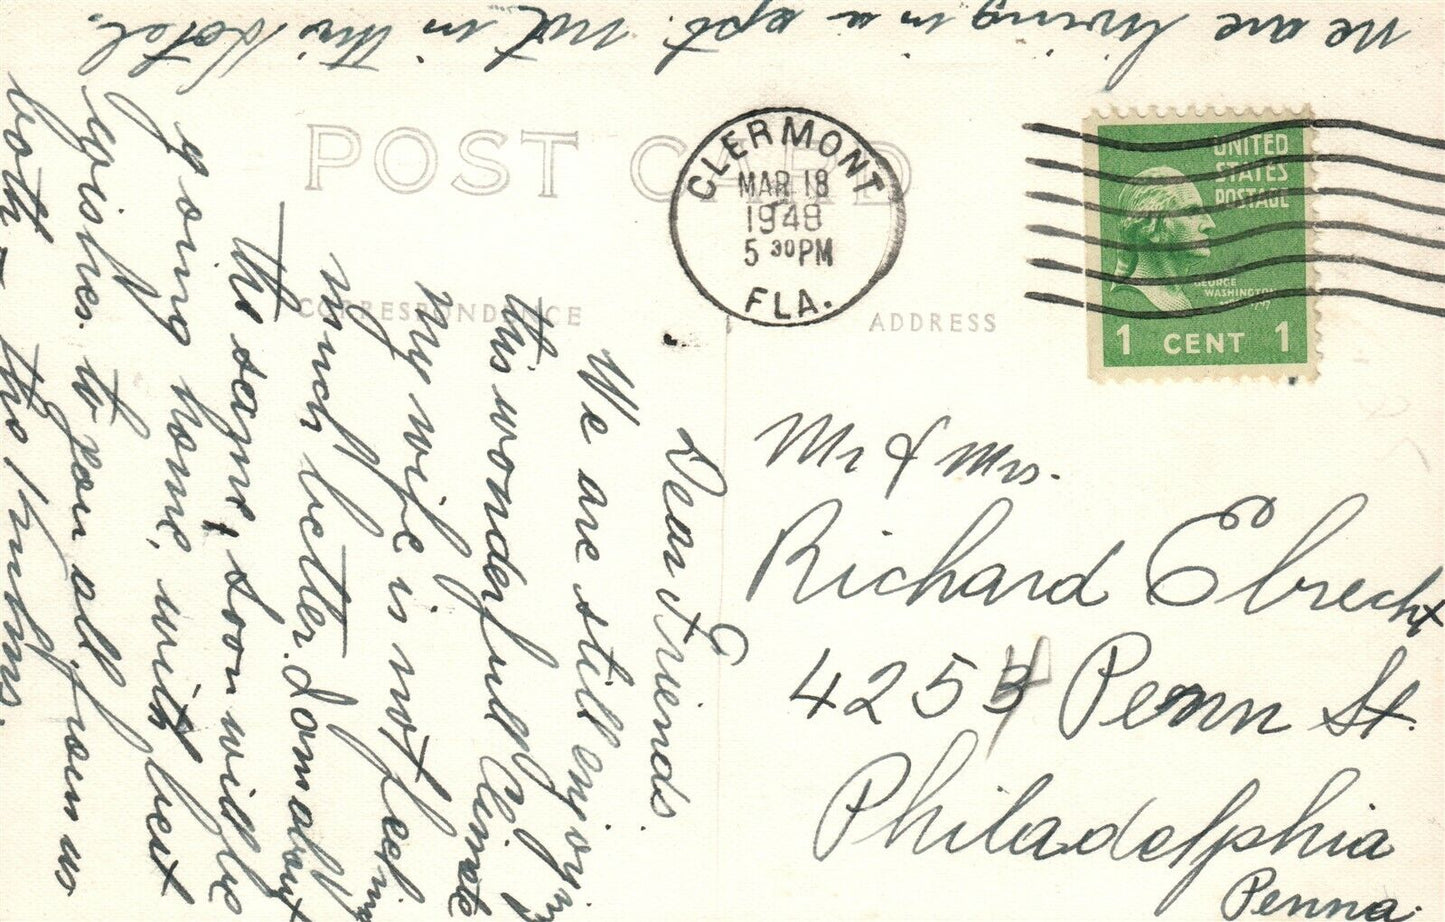 We are living in a apt. not in this Hotel.
POST CARD
CLERMONT
MAR 18
1948
5 30 PM
FLA.
UNITED
STATES
POSTAGE
GEORGE
WASHINGTON
1 CENT 1
CORRESPONDENCE
ADDRESS
Dear Friends
We are still enjoying
this wonderful Climate
My wife is not feeling
much better. I am about
the same, soon will be
going home, with best
wishes to you all from us
both - the
Mr & Mrs.
Richard Ebrecht
4254 Penn St.
Philadelphia
Penna.